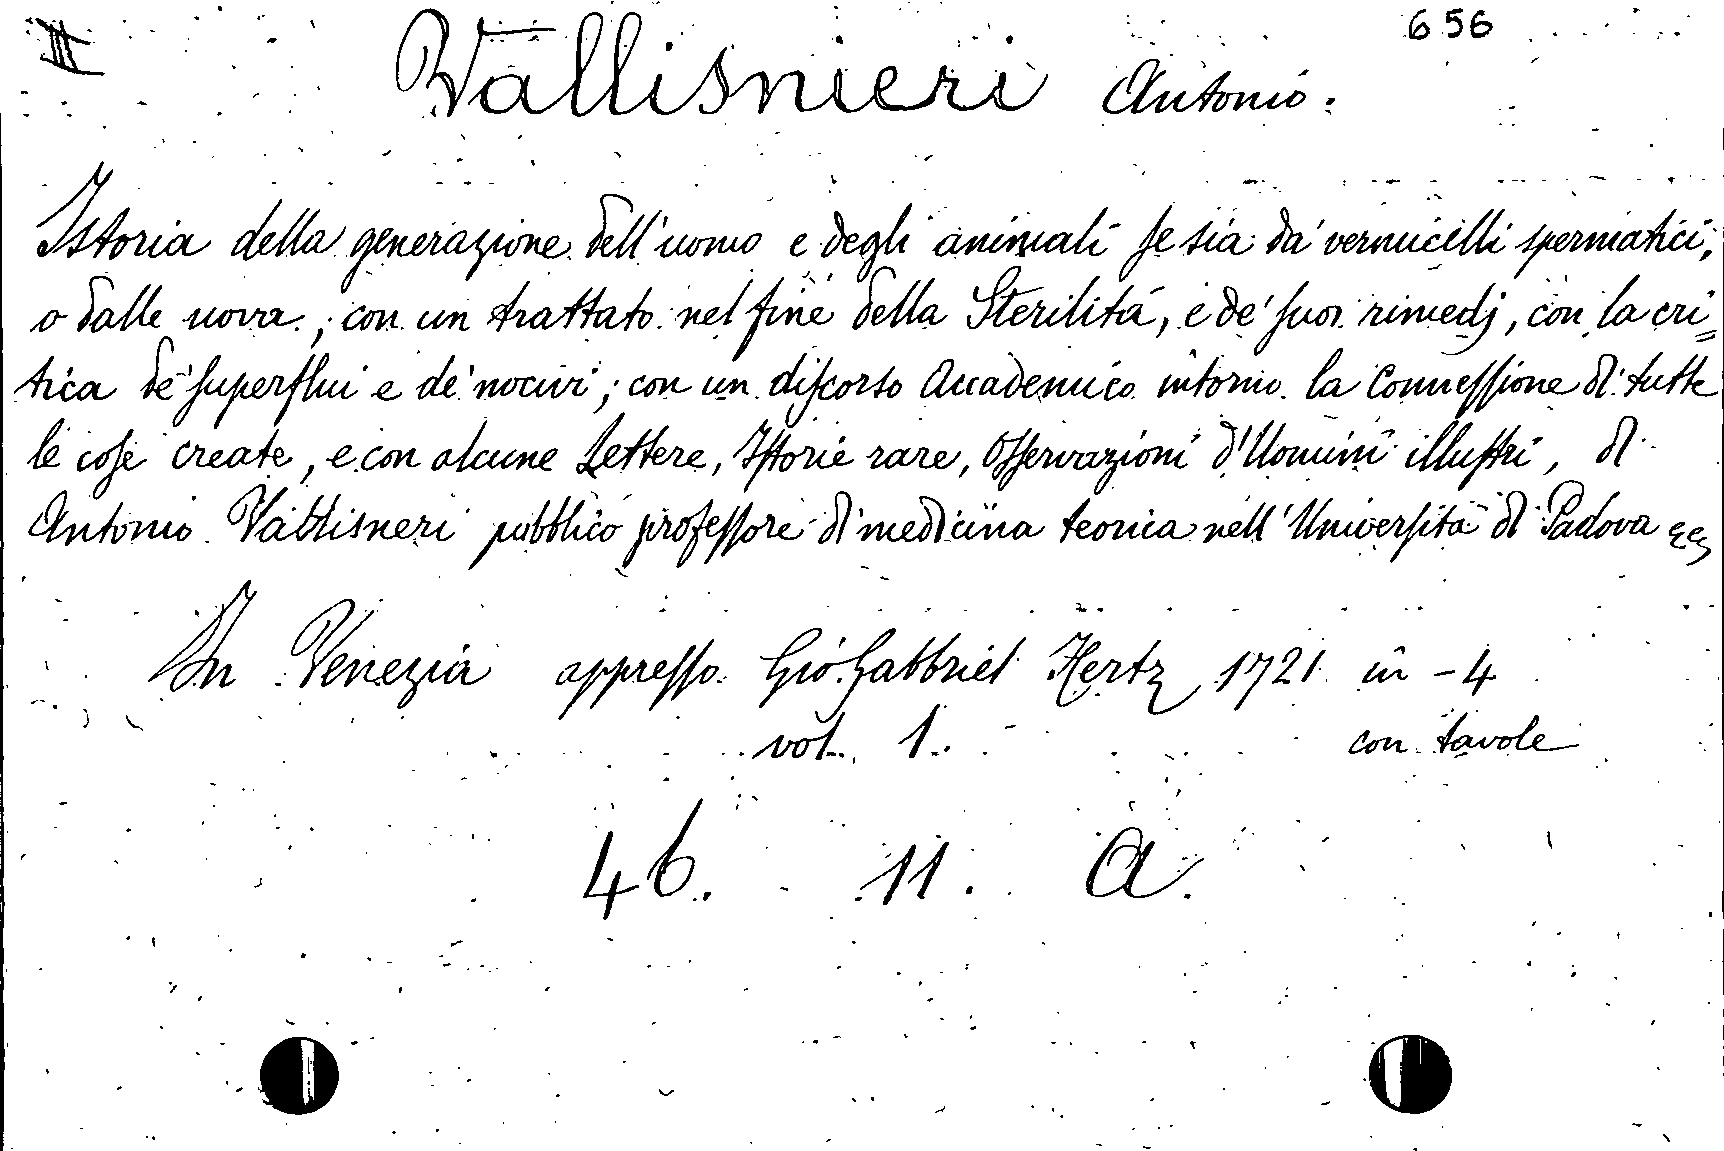 III
656
Vallisnieri Antonio.
Istoria della generazione dell'uomo e degli animali se sia da' vermicelli spermatici,
o dalle uova; con un trattato nel fine della Sterilità, e de' suoi rimedj, con la cri=
tica de' superflui e de' nocivi; con un discorso Accademico intorno la Connessione di tutte
le cose create, e con alcune Lettere, Istorie rare, Osservazioni d'Uomini illustri, di
Antonio Vallisneri pubblico professore di medicina teorica nell'Università di Padova ecc
In Venezia appresso Gio. Gabbriel Hertz 1721 in-4
vol. 1. con tavole
46. 11. A.